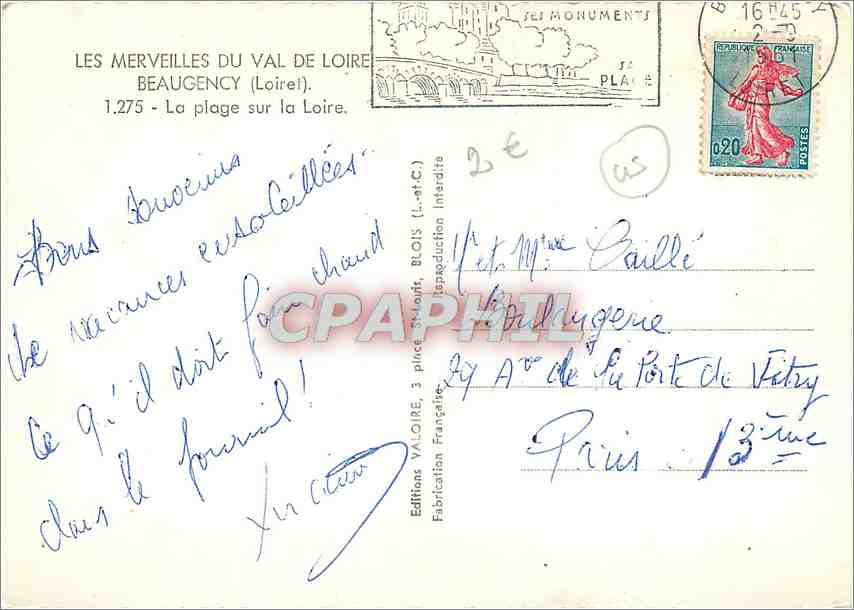 LES MERVEILLES DU VAL DE LOIRE
BEAUGENCY (Loiret).
1.275 - La plage sur la Loire.
SES MONUMENTS
SA
PLAGE
16 H 45
2 - 9
REPUBLIQUE FRANÇAISE
0,20
POSTES
2 €
Bons Souvenirs
de vacances ensoleillées.
Ce qu'il doit faire chaud
dans le fournil !
Editions VALOIRE, 3 place St-Louis, BLOIS (L.-et-C.)
Fabrication Française Reproduction Interdite
CPAPHIL
Mr et Mme Caillé
Boulangerie
29 Ave de la Porte de Vitry
Paris 13ème